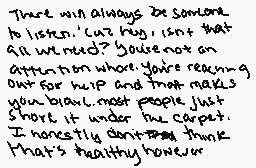 There will always be someone
to listen. 'Cuz hey, isnt that
all we need? You're not an
attention whore. You're reaching
out for help and that makes
you brave. most people just
shove it under the carpet.
I honestly don't think
that's healthy however